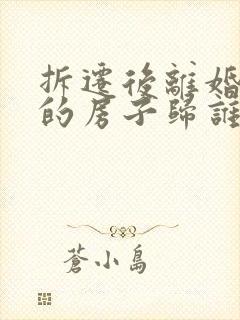 拆遷後離婚
的房子歸誰
蒼小島